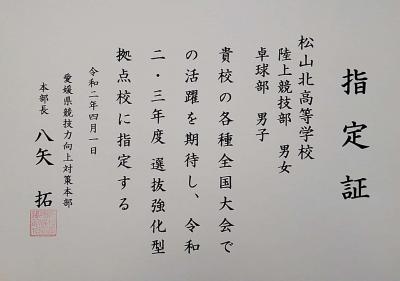 指定証
松山北高等学校
陸上競技部 男女
卓球部 男子
貴校の各種全国大会で
の活躍を期待し、令和
二・三年度 選抜強化型
拠点校に指定する
令和二年四月一日
愛媛県競技力向上対策本部
本部長 八矢 拓